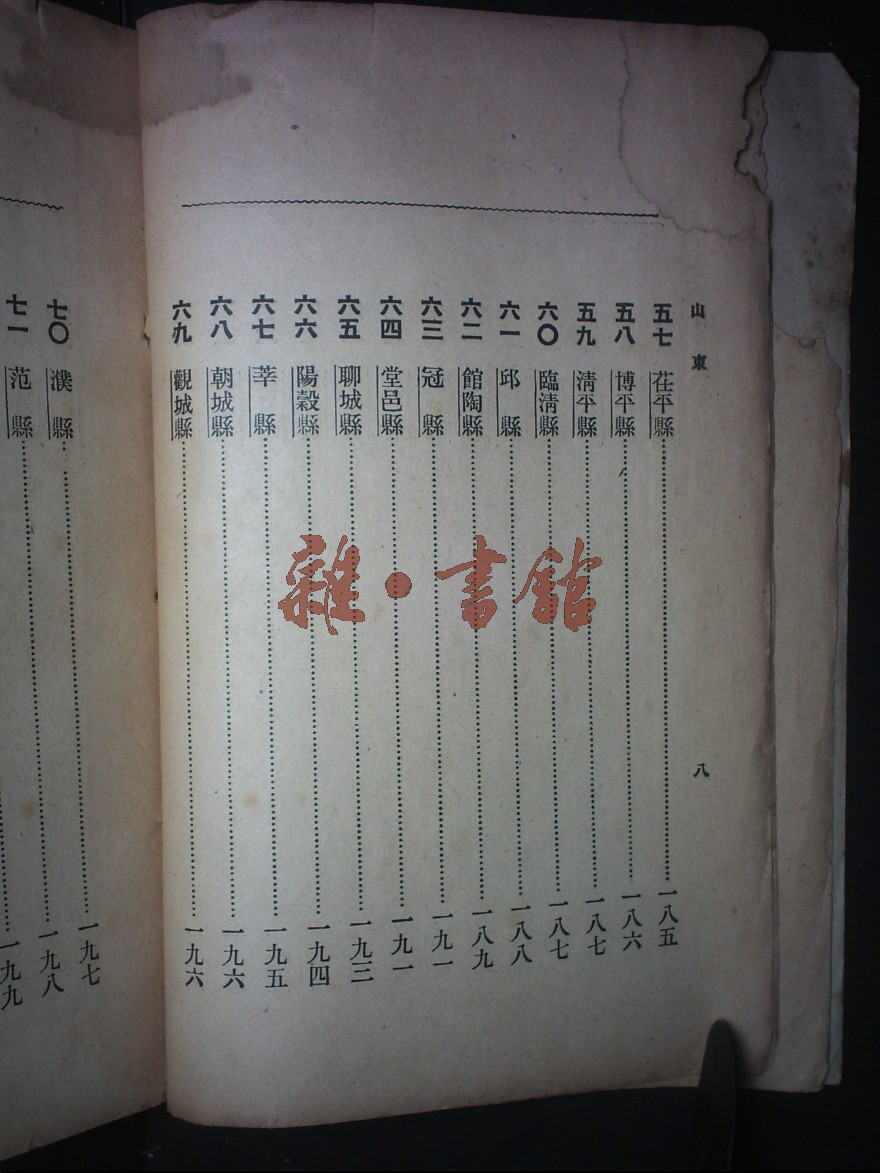 山東　八
五七　茌平縣……一八五
五八　博平縣……一八六
五九　清平縣……一八七
六〇　臨清縣……一八七
六一　邱　縣……一八八
六二　館陶縣……一八九
六三　冠　縣……一九一
六四　堂邑縣……一九一
六五　聊城縣……一九三
六六　陽穀縣……一九四
六七　莘　縣……一九五
六八　朝城縣……一九六
六九　觀城縣……一九六
七〇　濮　縣……一九七
七一　范　縣……一九八
……一九九
雜·書館